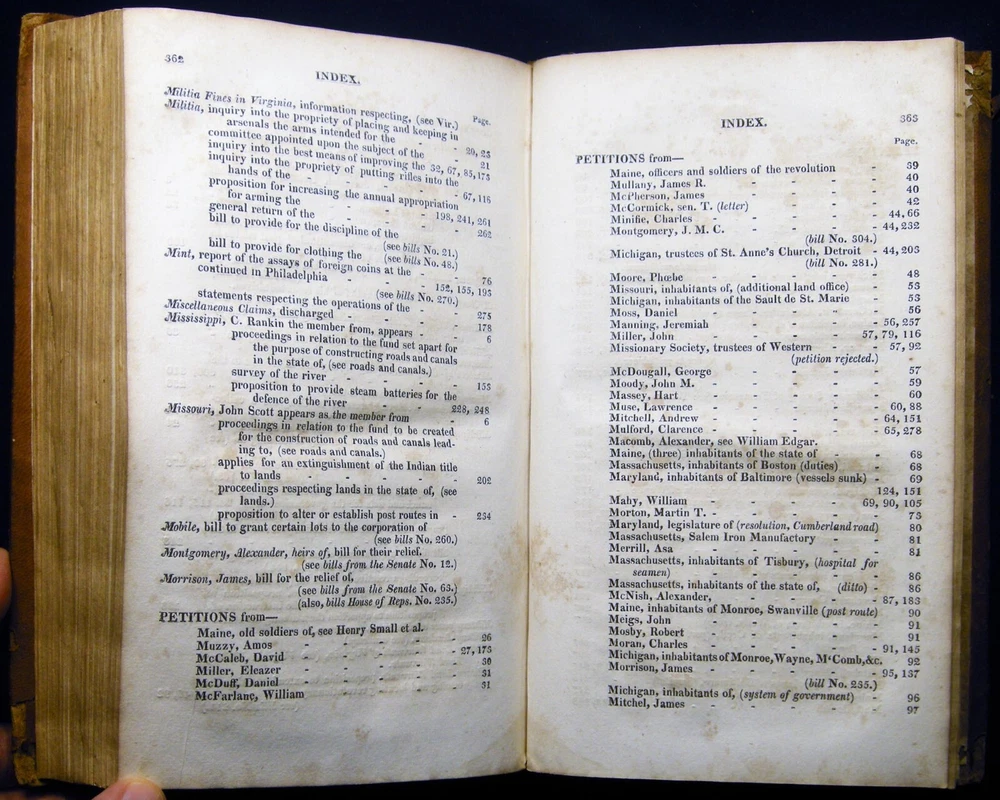 362
INDEX.
Page.
Militia Fines in Virginia, information respecting, (see Vir.)
Militia, inquiry into the propriety of placing and keeping in
arsenals the arms intended for the - - 20, 23
committee appointed upon the subject of the - 21
inquiry into the best means of improving the 32, 67, 85, 173
inquiry into the propriety of putting rifles into the
hands of the - - - - 67, 116
proposition for increasing the annual appropriation
for arming the - - - 198, 241, 261
general return of the - - - - 262
bill to provide for the discipline of the
(see bills No. 21.)
bill to provide for clothing the (see bills No. 48.)
Mint, report of the assays of foreign coins at the - - 76
continued in Philadelphia - - - 152, 155, 193
(see bills No. 270.)
statements respecting the operations of the - - 275
Miscellaneous Claims, discharged - - - - 178
Mississippi, C. Rankin the member from, appears - - 6
proceedings in relation to the fund set apart for
the purpose of constructing roads and canals
in the state of, (see roads and canals.)
survey of the river - - - - 153
proposition to provide steam batteries for the
defence of the river - - - 228, 248
Missouri, John Scott appears as the member from - - 6
proceedings in relation to the fund to be created
for the construction of roads and canals lead-
ing to, (see roads and canals.)
applies for an extinguishment of the Indian title
to lands - - - - - 202
proceedings respecting lands in the state of, (see
lands.)
proposition to alter or establish post routes in - 234
Mobile, bill to grant certain lots to the corporation of
(see bills No. 260.)
Montgomery, Alexander, heirs of, bill for their relief,
(see bills from the Senate No. 12.)
Morrison, James, bill for the relief of,
(see bills from the Senate No. 63.)
(also, bills House of Reps. No. 235.)
PETITIONS from—
Maine, old soldiers of, see Henry Small et al.
Muzzy, Amos - - - - - 26
McCaleb, David - - - - - 27, 173
Miller, Eleazer - - - - - 30
McDuff, Daniel - - - - - 31
McFarlane, William - - - - - 31
INDEX. 363
Page.
PETITIONS from—
Maine, officers and soldiers of the revolution - 39
Mullany, James R. - - - - - 40
McPherson, James - - - - - 40
McCormick, sen. T. (letter) - - - - 42
Minifie, Charles - - - - - 44, 66
Montgomery, J. M. C. - - - - - 44, 232
(bill No. 304.)
Michigan, trustees of St. Anne's Church, Detroit - 44, 203
(bill No. 281.)
Moore, Phœbe - - - - - 48
Missouri, inhabitants of, (additional land office) - 53
Michigan, inhabitants of the Sault de St. Marie - 53
Moss, Daniel - - - - - 56
Manning, Jeremiah - - - - - 56, 257
Miller, John - - - - 57, 79, 116
Missionary Society, trustees of Western - - 57, 92
(petition rejected.)
McDougall, George - - - - 57
Moody, John M. - - - - - 59
Massey, Hart - - - - - 60
Muse, Lawrence - - - - - 60, 88
Mitchell, Andrew - - - - - 64, 151
Mulford, Clarence - - - - - 65, 278
Macomb, Alexander, see William Edgar.
Maine, (three) inhabitants of the state of - - 68
Massachusetts, inhabitants of Boston (duties) - 68
Maryland, inhabitants of Baltimore (vessels sunk) - 69
124, 151
Mahy, William - - - - 69, 90, 105
Morton, Martin T. - - - - - 73
Maryland, legislature of (resolution, Cumberland road) 80
Massachusetts, Salem Iron Manufactory - - 81
Merrill, Asa - - - - - 81
Massachusetts, inhabitants of Tisbury, (hospital for
seamen) - - - - - 86
Massachusetts, inhabitants of the state of, (ditto) - 86
McNish, Alexander, - - - - - 87, 183
Maine, inhabitants of Monroe, Swanville (post route) 90
Meigs, John - - - - - 91
Mosby, Robert - - - - - 91
Moran, Charles - - - - - 91, 145
Michigan, inhabitants of Monroe, Wayne, M'Comb, &c. 92
Morrison, James - - - - - 95, 137
(bill No. 235.)
Michigan, inhabitants of, (system of government) - 96
Mitchel, James - - - - - 97